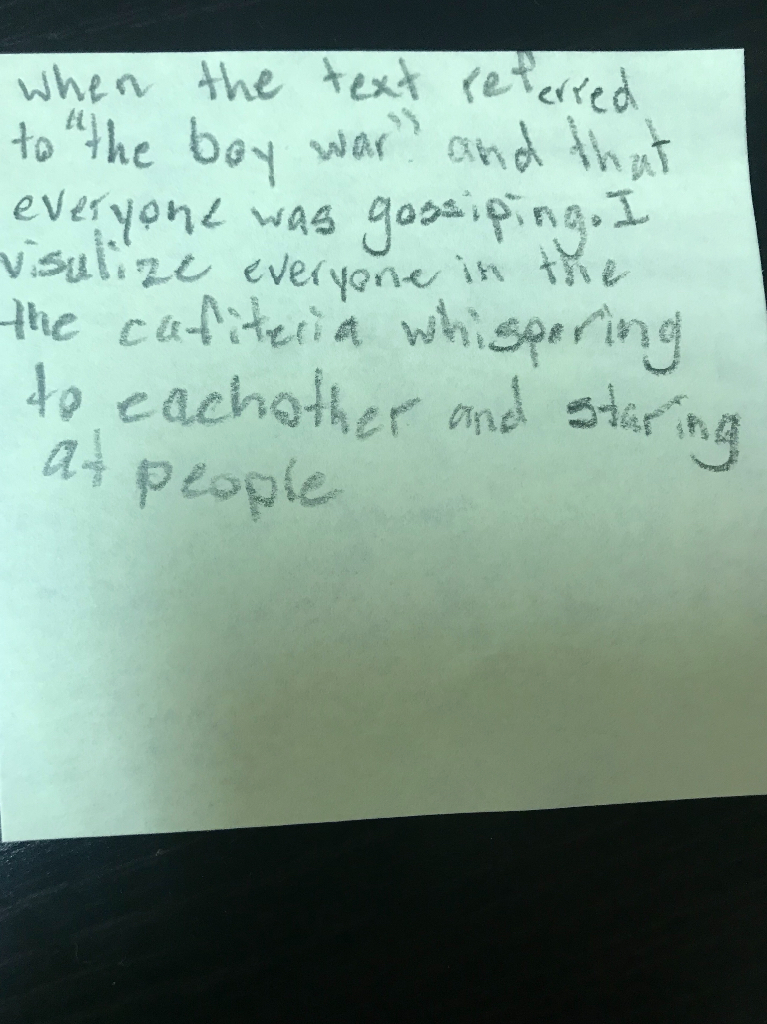 when the text referred
to "the boy war" and that
everyone was gossiping. I
visulize everyone in the
the cafiteria whispering
to eachother and staring
at people